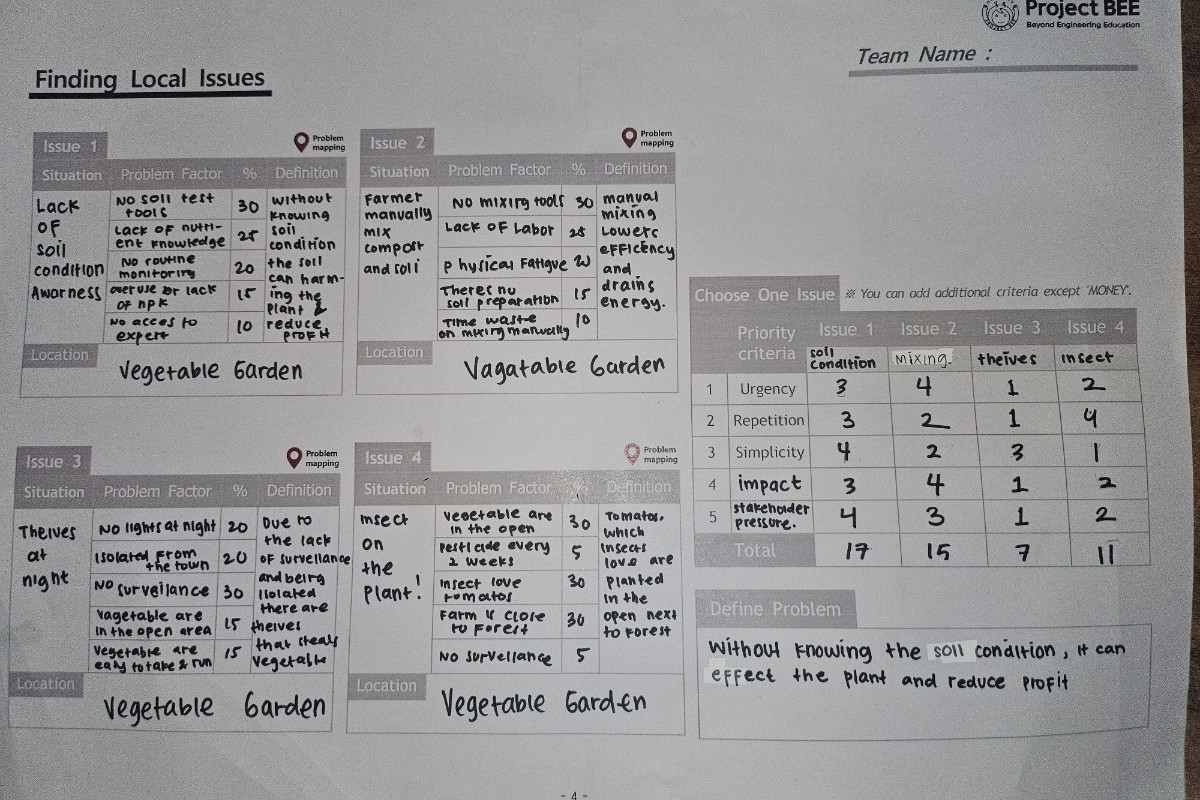 Project BEE
Beyond Engineering Education
Team Name :
Finding Local Issues
Issue 1
Problem
mapping
Situation Problem Factor % Definition
Lack
OF
soil
condition
Aworness
No soil test
tools
30
Lack of nutri-
ent knowledge
25
No routine
monitoring
20
overuse or lack
of NPK
15
No acces to
expert
10
without
knowing
soil
condition
the soil
can harm-
ing the
plant &
reduce
profit
Location
Vegetable Garden
Issue 2
Problem
mapping
Situation Problem Factor % Definition
Farmer
manually
mix
compost
and soli
No mixing tools
30
Lack of Labor
25
Physical Fatigue
20
Theres no
soil preparation
15
Time waste
on mixing manually
10
manual
mixing
Lowers
efficency
and
drains
energy.
Location
Vagatable Garden
Choose One Issue ※ You can add additional criteria except 'MONEY'.
Priority
criteria
Issue 1 Issue 2 Issue 3 Issue 4
soil
condition
mixing.
theives
insect
1 Urgency 3 4 1 2
2 Repetition 3 2 1 4
3 Simplicity 4 2 3 1
4 impact 3 4 1 2
5 stakeholder
pressure. 4 3 1 2
Total 17 15 7 11
Issue 3
Problem
mapping
Situation Problem Factor % Definition
Theives
at
night
No lights at night
20
Isolated from
the town
20
No surveilance
30
Vagetable are
in the open area
15
Vegetable are
easy to take & run
15
Due to
the lack
of survellance
and being
isolated
there are
theives
that steals
vegetable
Location
Vegetable Garden
Issue 4
Problem
mapping
Situation Problem Factor % Definition
Insect
on
the
Plant!
Vegetable are
in the open
30
Pesticide every
2 weeks
5
Insect love
tomatos
30
Farm is close
to forest
30
No survellance
5
Tomatos,
which
insects
love are
planted
in the
open next
to forest
Location
Vegetable Garden
Define Problem
Without knowing the soil condition, it can
effect the plant and reduce profit
- 4 -